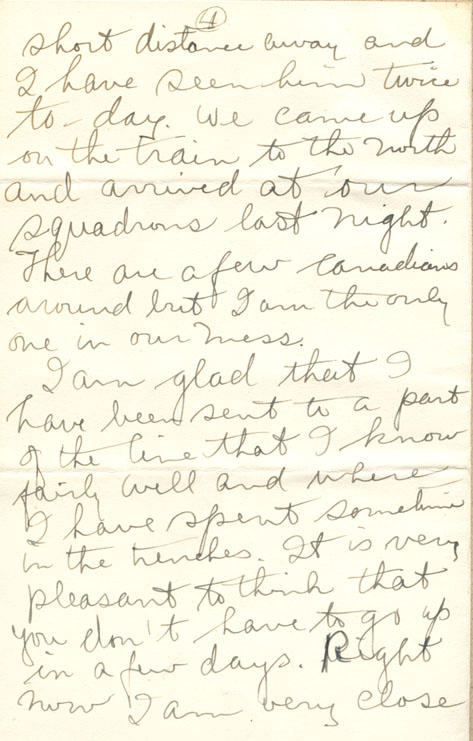 4
short distance away and
I have seen him twice
to-day. We came up
on the train to the north
and arrived at our
squadrons last night.
There are a few Canadians
around but I am the only
one in our mess.
I am glad that I
have been sent to a part
of the line that I know
fairly well and where
I have spent sometime
in the trenches. It is very
pleasant to think that
you don't have to go up
in a few days. Right
now I am very close